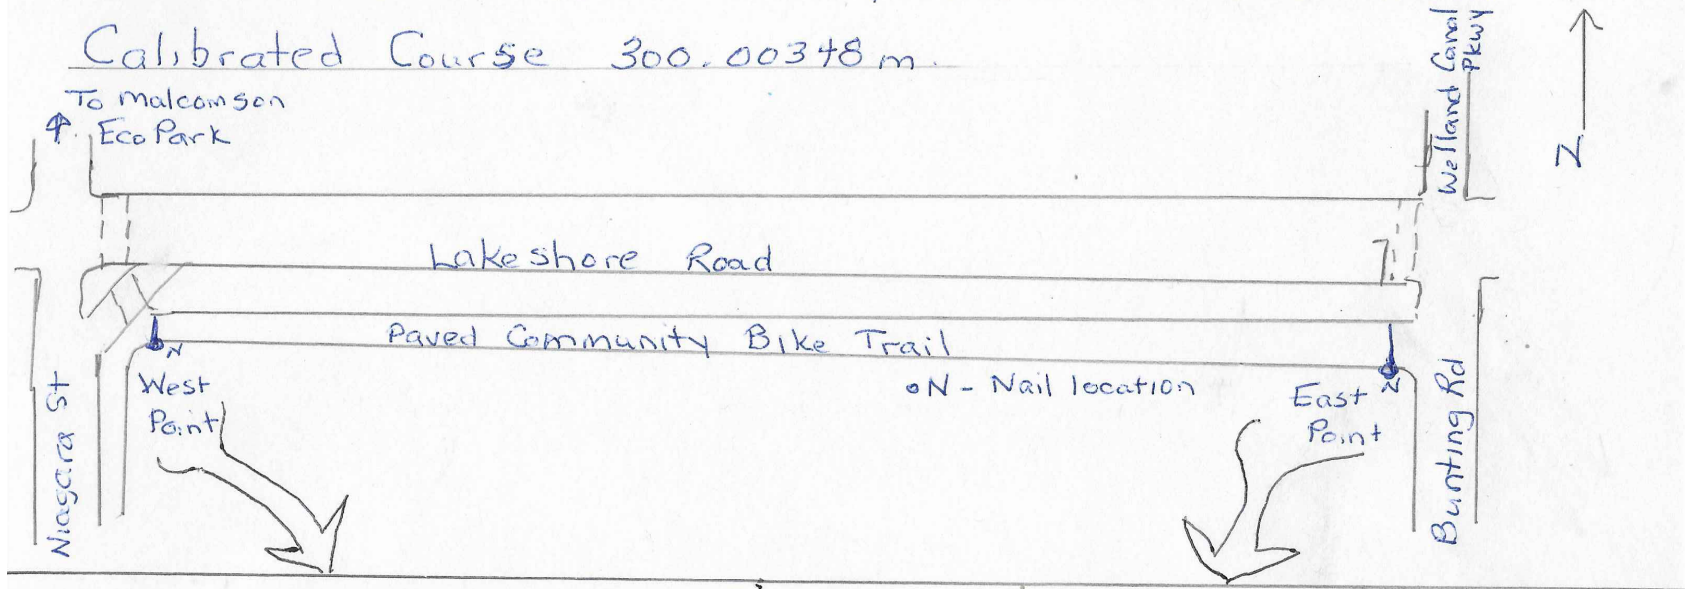 Calibrated Course 300.00348 m.
To Malcomson
Eco Park
Welland Canal
Pkwy
N
Lakeshore Road
Paved Community Bike Trail
N
West
Point
N - Nail location
East
Point
N
Niagara St
Bunting Rd